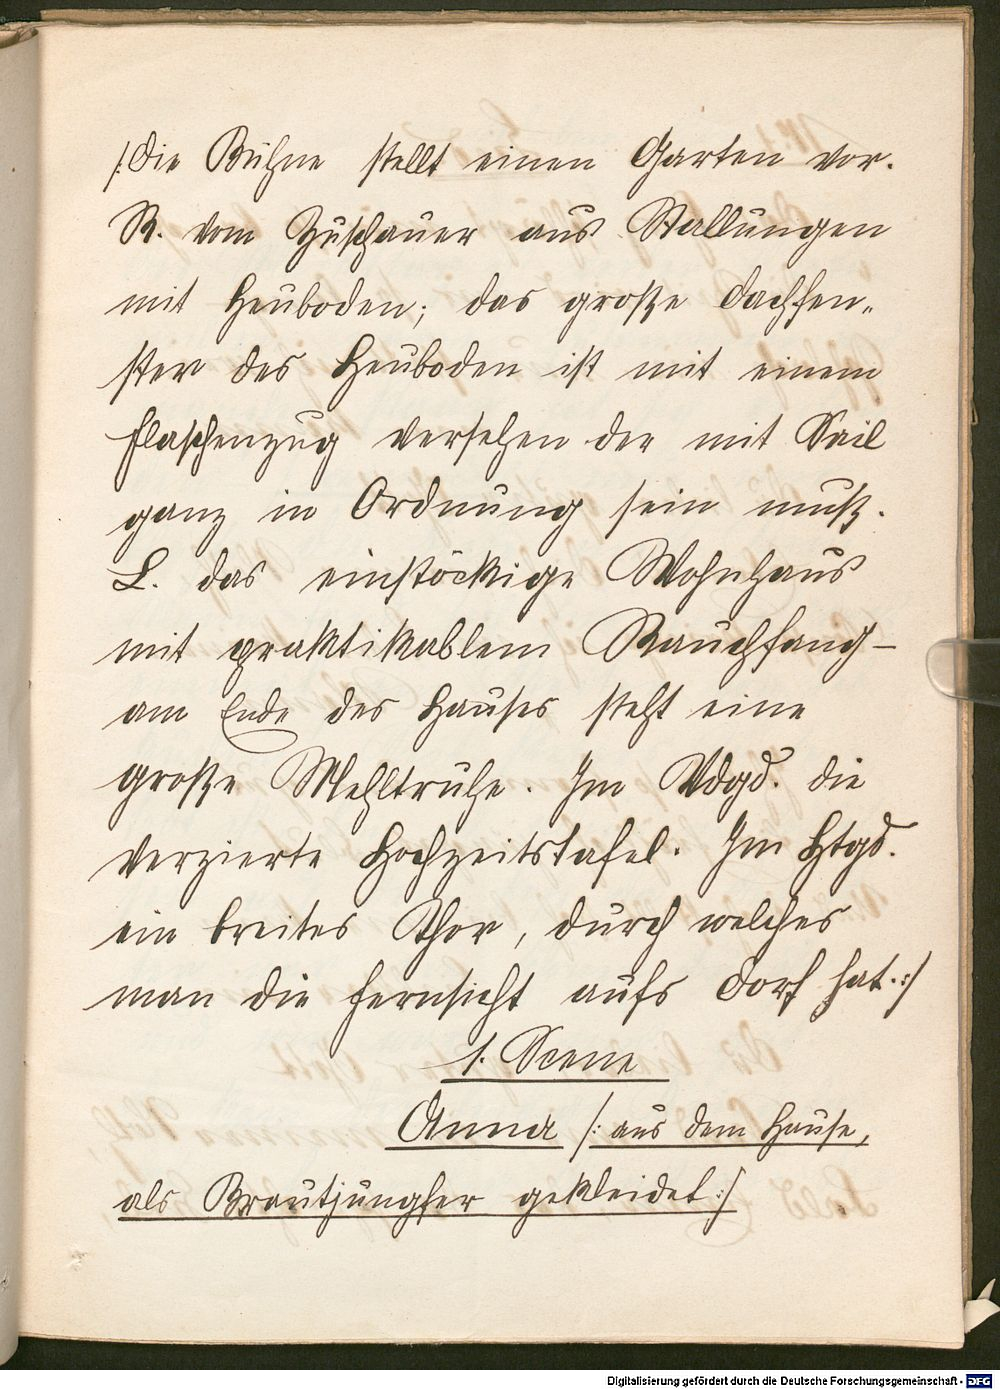 /:Die Bühne stellt einen Garten vor.
R. vom Zuschauer aus Stallungen
mit Heuboden; das große Dachfen-
ster des Heuboden ist mit einem
Flaschenzug versehen der mit Sail
ganz in Ordnung sein muß.
L. das einstöckige Wohnhaus
mit praktikablem Rauchfang –
am Ende des Hauses steht eine
große Mehltruhe. Im Vdgd. die
verzierte Hochzeitstafel. Im Htgd.
ein breites Thor, durch welches
man die Fernsicht aufs Dorf hat.:/
1. Scene
Anna /: aus dem Hause,
als Brautjungfer gekleidet:/
Digitalisierung gefördert durch die Deutsche Forschungsgemeinschaft - DFG